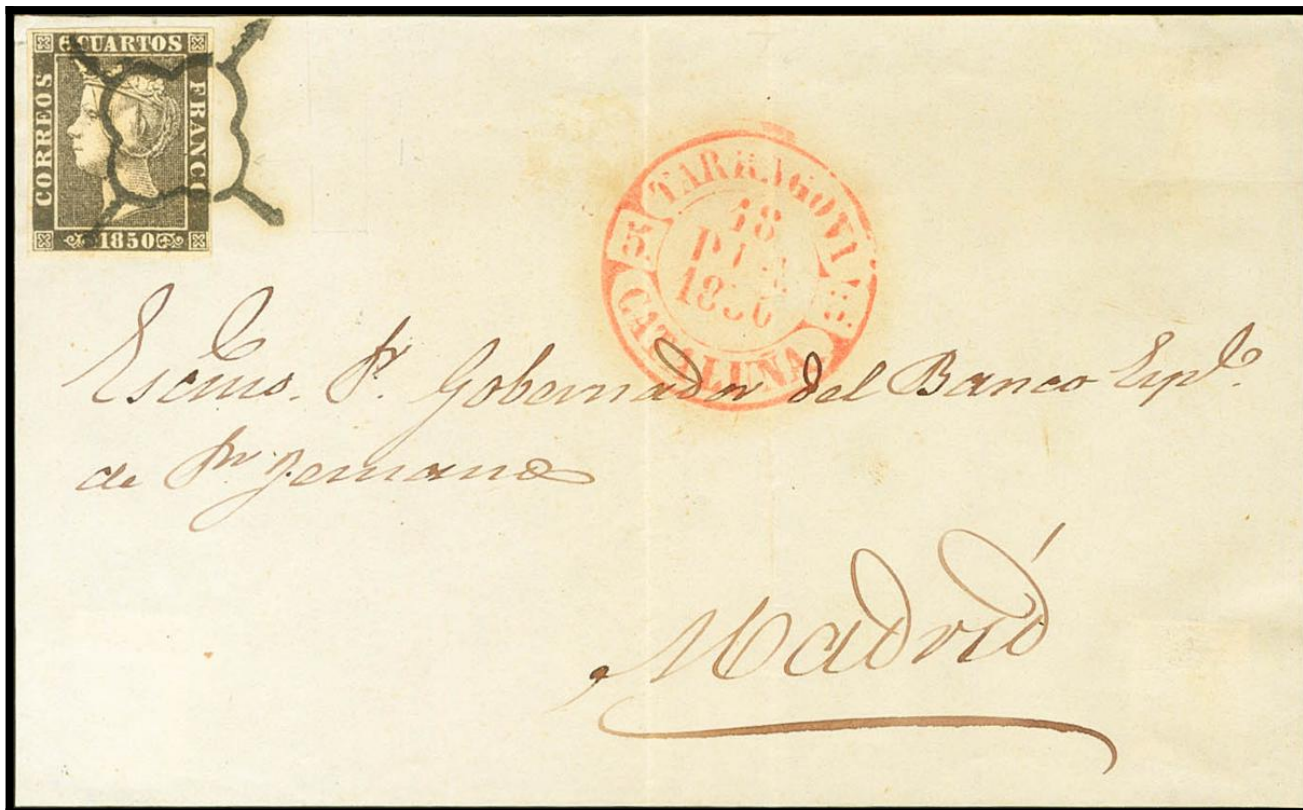 6 CUARTOS
CORREOS
FRANCO
1850
TARRAGONA
18
DIC
1850
CATALUÑA
Escmo. Sr. Gobernador del Banco Espl.
de Sn Fernando
Madrid